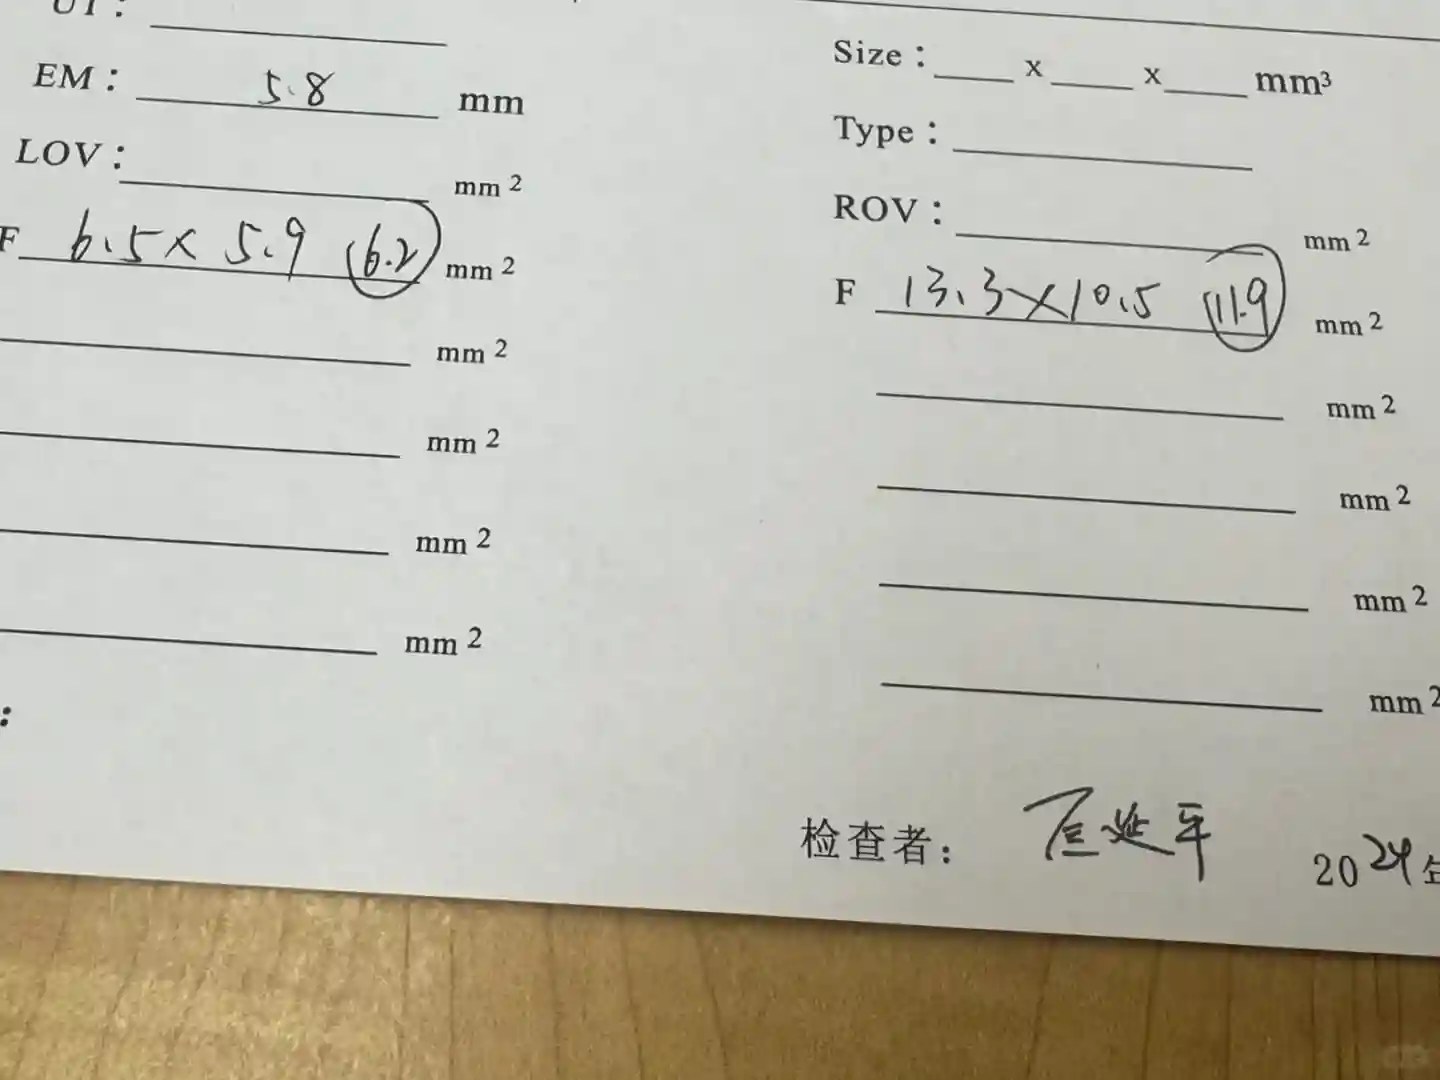 UT：
EM： 5.8 mm
LOV： mm²
F 6.5 × 5.9 (6.2) mm²
mm²
mm²
mm²
mm²
：
Size： x x mm³
Type：
ROV： mm²
F 13.3 × 10.5 (11.9) mm²
mm²
mm²
mm²
mm²
检查者： 2024年